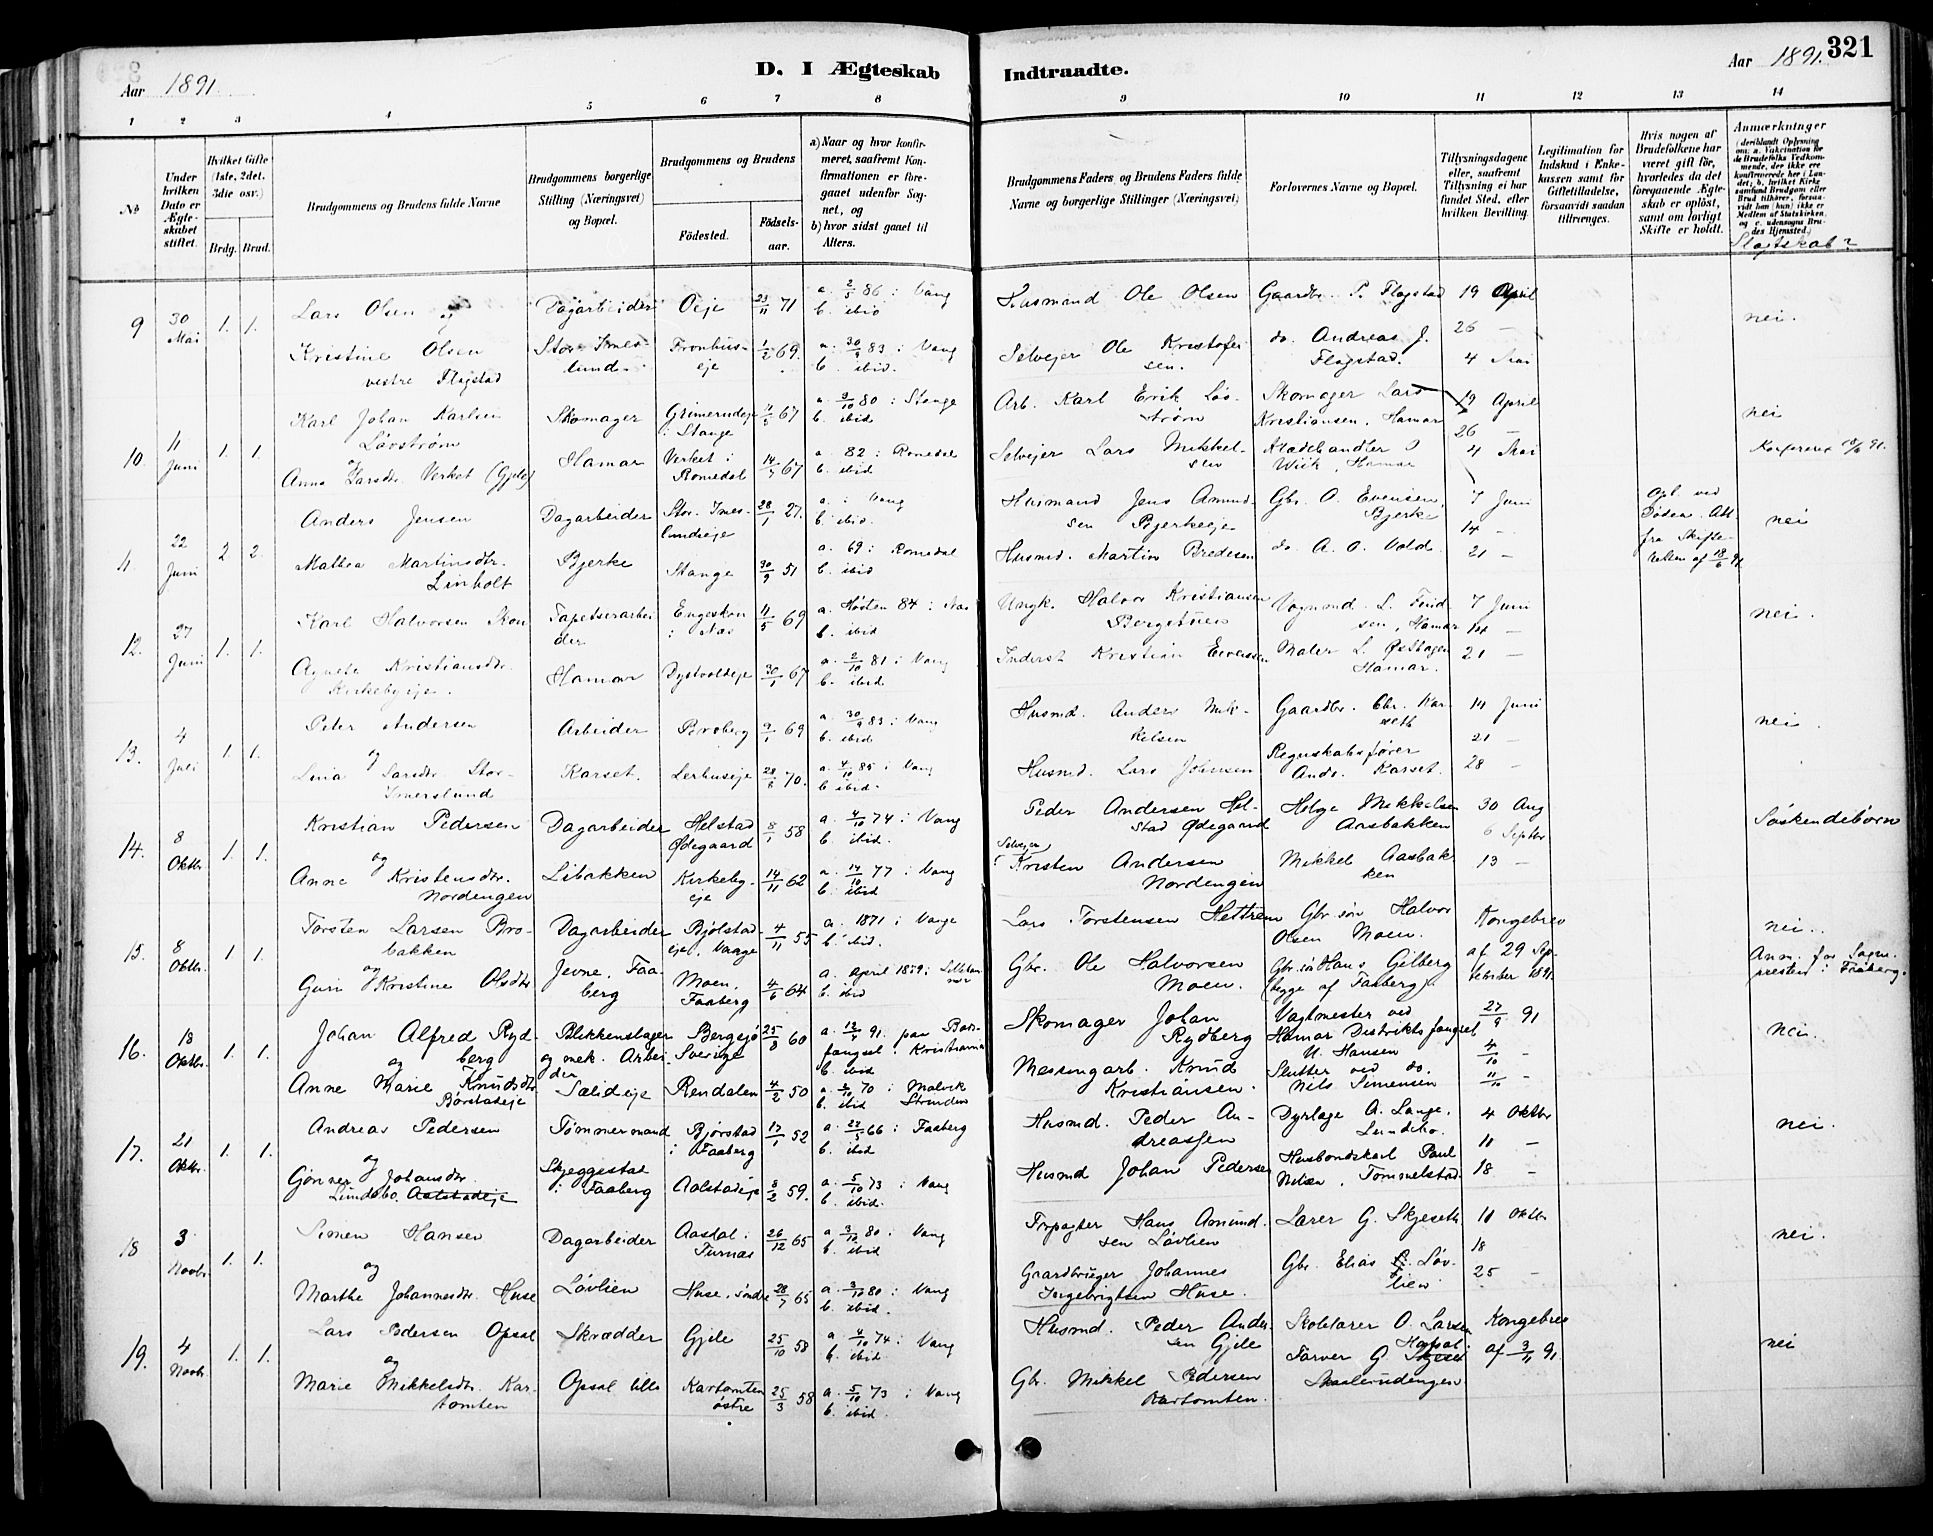 Aar 1891
D. I Ægteskab
Indtraadte.
Aar 1891.
321
1 2 3 4 5 6 7 8 9 10 11 12 13 14
No
Under hvilken Dato er Ægteskabet stiftet.
Hvilket Gifte (1ste, 2det, 3die osv.)
Brdg. Brud.
Brudgommens og Brudens fulde Navne
Brudgommens borgerlige Stilling (Næringsvei) og Bopæl.
Brudgommens og Brudens
Fødested.
Fødselsaar.
a) Naar og hvor konfirmeret, saafremt Konfirmationen er foregaaet udenfor Sognet, og
b) hvor sidst gaaet til Alters.
Brudgommens Faders og Brudens Faders fulde Navne og borgerlige Stillinger (Næringsvei)
Forlovernes Navne og Bopæl.
Tillysningsdagene eller, saafremt Tillysning ei har fundet Sted, efter hvilken Bevilling.
Legitimation for Indskud i Enkekassen samt for Giftetilladelse, forsaavidt saadan tiltrænges.
Hvis nogen af Brudefolkene har været gift før, hvorledes da det foregaaende Ægteskab er opløst, samt om lovligt Skifte er holdt.
Anmærkninger
(deriblandt Oplysning om: a. Vakcination for de Brudefolks Vedkommende, der ikke ere konfirmerede her i Landet; b. hvilket Kirkesamfund Brudgom eller Brud tilhører, forsaavidt han (hun) ikke er Medlem af Statskirken, og c. udensogns Brudes Hjemsted.)
Slægtskab?
9 30 Mai 1. 1. Lars Olsen og Dagarbeider Oeje 23/11 71 a. 2/5 86 i Vang b. ibid Husmand Ole Olsen Gaardbr. P. Flagstad 19 April nei.
Kristine Olsen vestre Flagstad Stor-Imeslund Fronhuseje 1/2 69. a. 30/9 83 i Vang b. ibid. Selvejer Ole Kristofersen. do. Andreas J. Flagstad. 26 — 4 Mai
10. 11 Juni 1. 1. Karl Johan Karlsen Løvstrøm og Skomager Grimerudeje i Stange 11/5 67 a. 3/10 80 i Stange b. ibid Arb. Karl Erik Løvstrøm Skomager Lars Kristiansen, Hamar 19 April 26 — nei
Anna Larsdtr. Verket (Gjile) Hamar Verket i Romedal 14/5 67 a. 82 i Romedal b. ibid Selvejer Lars Mikkelsen Klædehandler O Wiik, Hamar 4 Mai
11 22 Juni 2 2. Anders Jensen Dagarbeider Stor-Imeslundseje 28/1 27. a. i Vang b. ibid. Husmand Jens Amundsen Bjerkeeje Gbr. O. Evensen Bjerke 7 Juni 14 — Opl. ved Døden. Att. fra Skifteretten af 18/6 91 nei
Mathea Martinsdtr. Linholt Bjerke Stange 30/9 51 a. 69 i Romedal b. ibid Husmd. Martin Bredesen do A. O. Vold 21 —
12. 27 Juni 1. 1. Karl Halvorsen Skou Tapetserarbeider Engeskou i Næs 11/5 69 a. Høsten 84 i Næs b. ibid Ungk. Halvor Kristiansen Bergestuen Vognmd. L. Findsen, Hamar 7 Juni 14 — nei.
Agnete Kristiansdtr. Kirkebyeje. Hamar Dystvoldeje 30/1 67 a. 2/10 81 i Vang b. ibid Inderst Kristian Evensen Maler L. Østhagen Hamar. 21 —
13. 4 Juli 1. 1. Peter Andersen og Arbeider Broberg 9/1 69 a. 30/9 83 i Vang b. ibid Husmd. Anders Mikkelsen Gaardbr. Chr. Karseth 14 Juni 21 — nei
Lina Larsdtr. Stor-Imerslund Karset. Lerhuseje 28/8 70. a. 4/10 85 i Vang b ibid. Husmd. Lars Johnsen Regnskabsfører Ands. Karset. 28 —
14. 8 Oktbr. 1. 1. Kristian Pedersen og Dagarbeider Helstad Ødegaard 8/1 58 a. 4/10 74 i Vang b. ibid Peder Andersen Helstad Ødegaard Helge Mikkelsen Aasbakken 30 Aug 6 Septbr Søskendebørn
Anne Kristensdtr. Nordengen Libakken Kirkebyeje 14/11 62 a. 14/10 77 i Vang b. ibid Selvejer Kristen Andersen Nordengen Mikkel Aasbakken 13 —
15. 8 Oktbr. 1 1. Torsten Larsen Brobakken og Dagarbeider Bjølstadeje, Vaage 4/11 55 a. 1871 i Vaage b. ibid. Lars Torstensen Hettrem Gbr. søn Halvor Olsen Moen. Kongebrev af 29 September 1891 nei.
Guri Kristine Olsdtr Jevne, Faaberg Moen, Faaberg 4/6 64 a. April 1879 i Lillehammer b. ibid Gbr. Ole Halvorsen Moen. Gbr. søn Hans Gilberg (begge af Faaberg). Anm. for Sognepresten i Faaberg.
16. 18 Oktbr. 1. 1. Johan Alfred Rydberg og Blikkenslager og mek. Arbeider Bergsjö Sverige 25/8 60 a. 12/4 91. paa Bodsfængsel i Kristiania b. ibid Skomager Johan Rydberg Vagtmester ved Hamar Distriktsfængsel N. Hansen 27/9 91 4/10 - nei.
Anne Marie Knudsdtr. Børstadeje Sælideje Rendalen 4/2 50 a. 2/10 70 i Malvik b. ibid Strinden Messingarb. Knud Kristiansen. Slutter ved do. Nils Simensen 11/10 -
17. 21 Oktbr. 1. 1. Andreas Pedersen og Tømmermand Bjørstad i Faaberg 17/1 52 a. 27/5 66 i Faaberg b. ibid Husmd. Peder Andreassen Dyrlæge A. Lange. Lundsbo. 4 Oktbr 11 — nei.
Gønner Johansdtr. Lundsbo Aalstadeje Skjeggestad i Faaberg Aalstadeje 8/2 59. a. 5/10 73 i Vang b. ibid. Husmd Johan Pedersen Husbondskarl Paul Nilsen, Tommelstad. 18 —
18 3 Novbr. 1. 1. Simen Hansen og Dagarbeider Aasdal i Furnæs 26/12 65 a. 3/10 80 i Vang b. ibid Forpagter Hans Amundsen Løvlien Lærer G. Skjeseth 11 Oktbr 18 nei.
Marthe Johannesdtr. Huse Løvlien Huse, søndre 28/7 65 a. 3/10 80 i Vang b. ibid. Gaardbruger Johannes Ingebrigtsen Huse. Gbr. Elias Løvlien 25 —
19. 4 Novbr. 1. 1. Lars Pedersen Opsal og Skrædder Gjile 25/10 58 a. 4/10 74 i Vang b. ibid. Husmd. Peder Andersen Gjile Skolelærer O. Larsen Hapsal. Kongebrev af 3/11 91. nei
Marie Mikkelsdtr. Kartomten Opsal lille Kartomten østre 25/3 58 a. 5/10 73 i Vang b. ibid. Gbr. Mikkel Pedersen Kartomten. Farver G. Skjeset Skaalerudengen